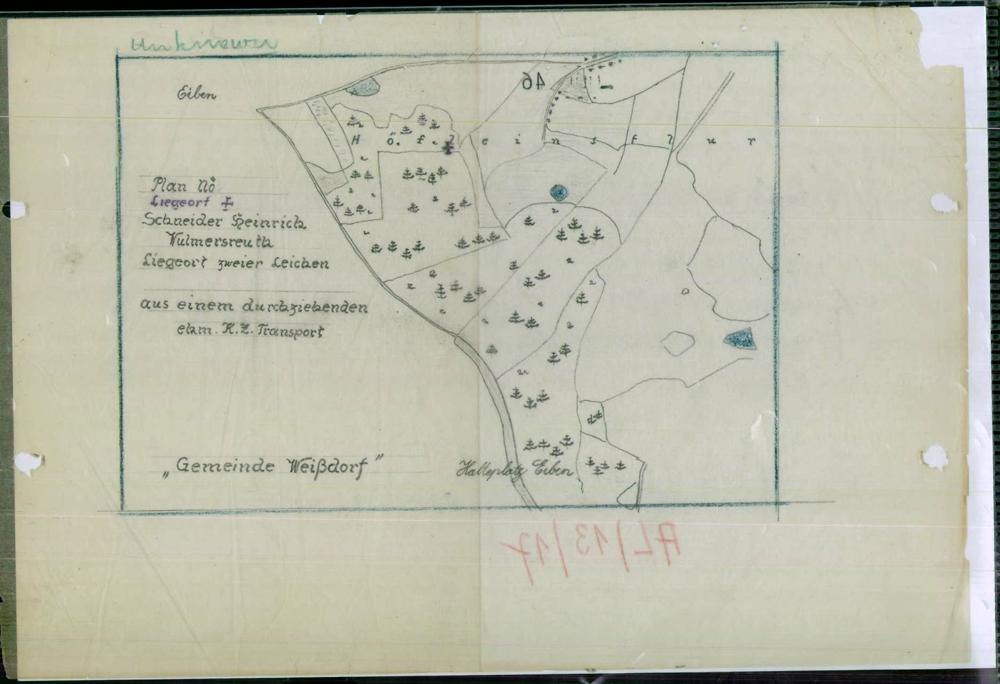 Unknown
46
Eiben
Höfleinsflur
Plan No
Liegeort ‡
Schneider Heinrich
Wulmersreuth
Liegeort zweier Leichen
aus einem durchziehenden
ehm. K.Z. Transport
„Gemeinde Weißdorf"
Halteplatz Eiben
AL/13/17